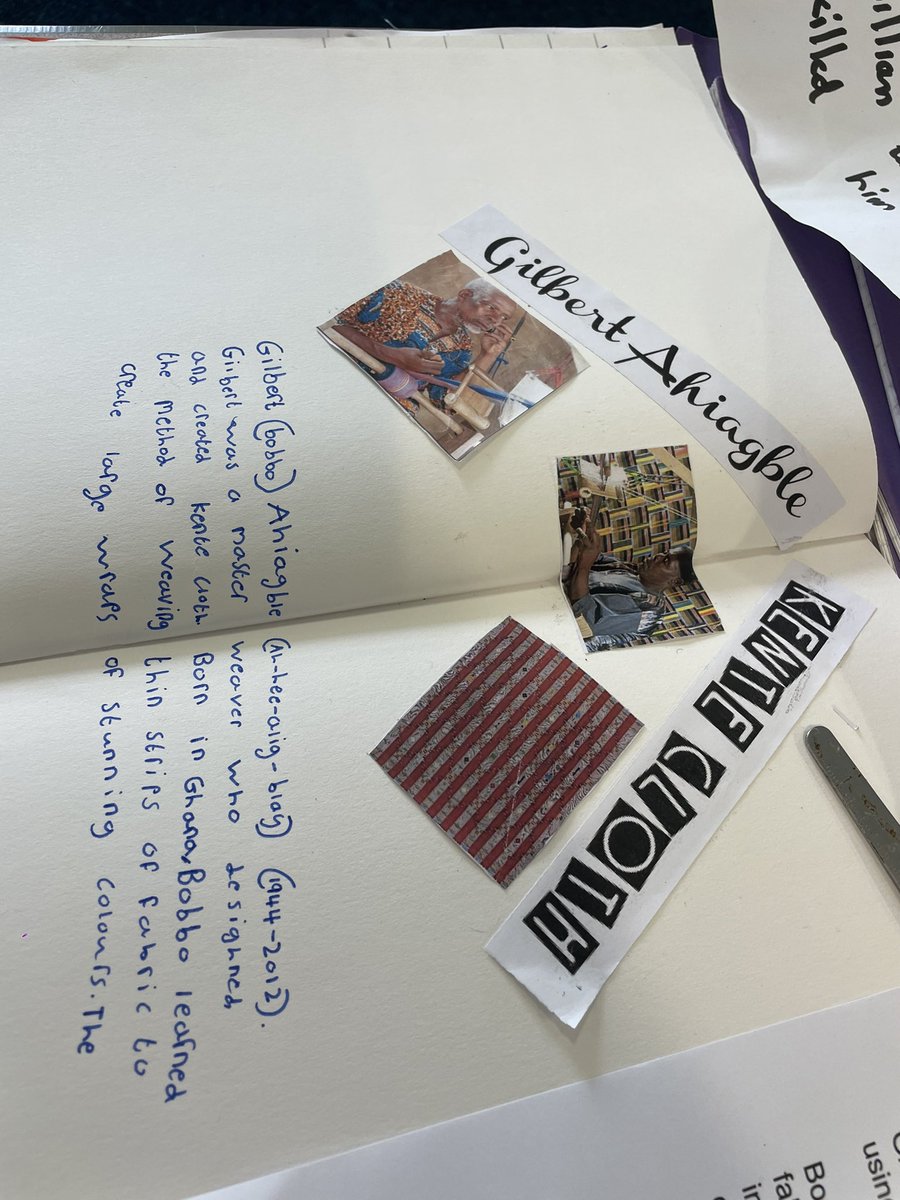 Gilbert Ahiagble
KENTE CLOTH
Gilbert (bobbo) Ahiagble (Ah-hee-aig-blay) (1944-2012).
Gilbert was a master weaver who designed
and created kente cloth. Born in Ghana, Bobbo learned
the method of weaving thin strips of fabric to
create large wraps of stunning colours. The
illian
killed
him
using
Bo
fa
in